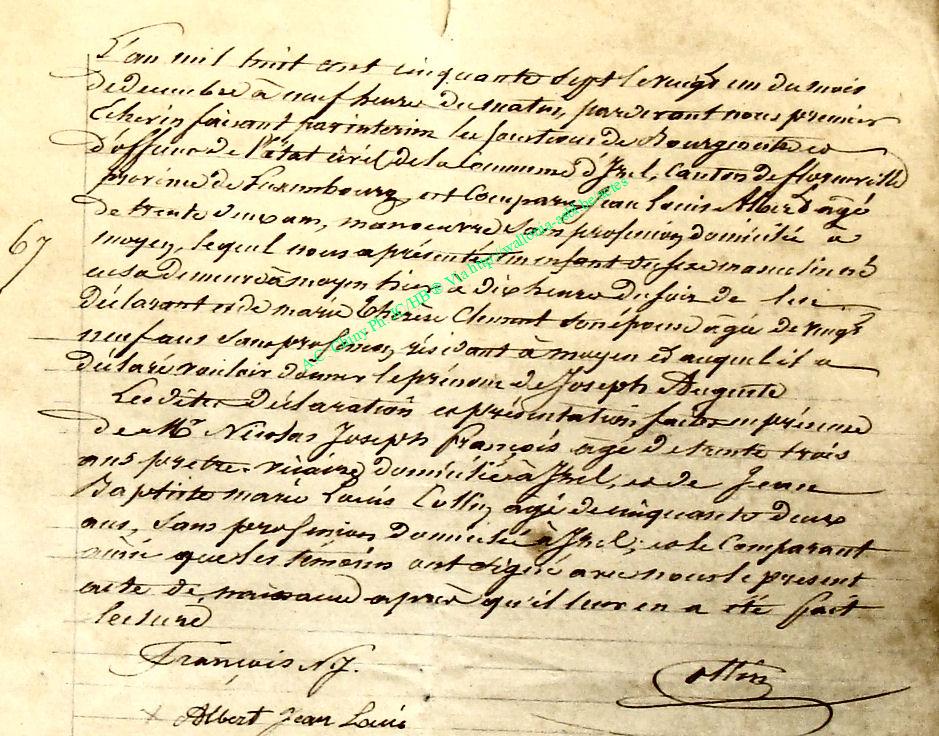 L'an mil huit cent cinquante sept le vingt un du mois
de decembre à neuf heures du matin, pardevant nous premier
Echevin faisant par interim les fonctions de Bourgmestre et
d'officier de l'état civil de la commune d'Izel, Canton de florenville
province de Luxembourg, est Comparu Jean Louis Albert âgé
de trente deux ans, manoeuvre Sans profession, domicilié à
moyen, lequel nous a présenté un enfant du sexe masculin né
en sa demeure à moyen hier à dix heures du soir de lui
déclarant et de marie Thérèse Clement son épouse âgée de vingt
67
neuf ans Sans profession, résidant à moyen et auquel il a
déclaré vouloir donner le prénom de Joseph Auguste
Lesdites déclaration et présentation faites en présence
de Mr Nicolas Joseph françois âgé de trente trois
ans pretre vicaire domicilié à Izel, et de Jean
Baptiste marie Louis Collin, âgé de cinquante deux
ans, Sans profession domicilié à Izel; et le Comparant
ainsi que les témoins ont signé avec nous le present
acte de naissance après qu'il leur en a été fait
lecture
François N J.
ollin
x Albert Jean Louis
A.C. Chiny Ph JC/HB © Via http://wallonia-asbl.be/actes